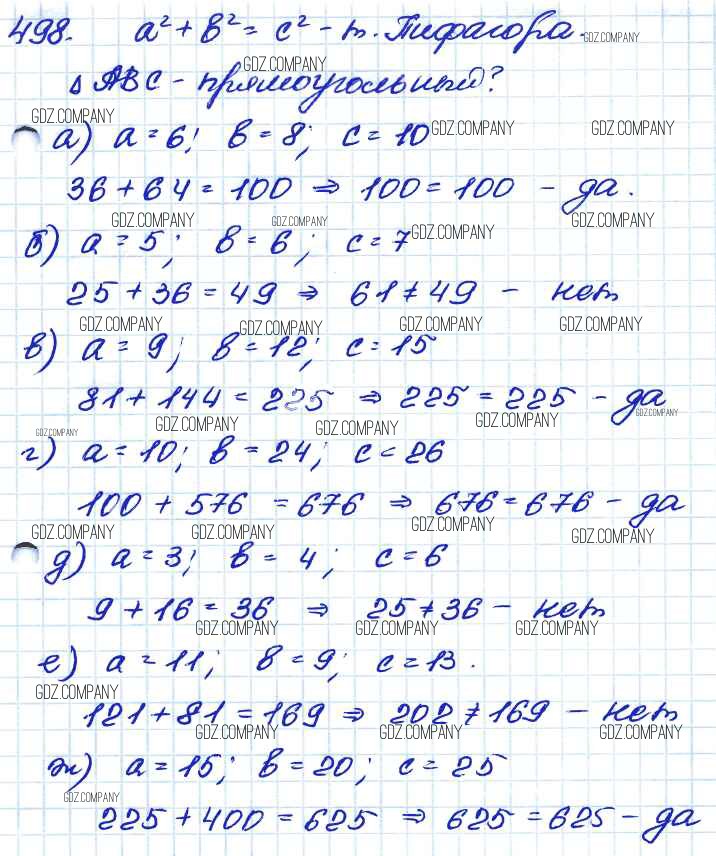 498. a² + b² = c² - т. Пифагора. GDZ.COMPANY
GDZ.COMPANY
Δ ABC - прямоугольный?
GDZ.COMPANY
а) a = 6; b = 8; c = 10 GDZ.COMPANY GDZ.COMPANY
36 + 64 = 100 ⇒ 100 = 100 - да.
GDZ.COMPANY GDZ.COMPANY GDZ.COMPANY
б) a = 5; b = 6; c = 7 GDZ.COMPANY
25 + 36 = 49 ⇒ 61 ≠ 49 - нет
GDZ.COMPANY GDZ.COMPANY GDZ.COMPANY GDZ.COMPANY
в) a = 9; b = 12; c = 15
81 + 144 = 225 ⇒ 225 = 225 - да
GDZ.COMPANY GDZ.COMPANY GDZ.COMPANY GDZ.COMPANY
GDZ.COMPANY
г) a = 10; b = 24; c = 26
100 + 576 = 676 ⇒ 676 = 676 - да
GDZ.COMPANY GDZ.COMPANY GDZ.COMPANY GDZ.COMPANY
д) a = 3; b = 4; c = 6
9 + 16 = 36 ⇒ 25 ≠ 36 - нет
GDZ.COMPANY GDZ.COMPANY GDZ.COMPANY
е) a = 11; b = 9; c = 13.
GDZ.COMPANY
121 + 81 = 169 ⇒ 202 ≠ 169 - нет
GDZ.COMPANY GDZ.COMPANY GDZ.COMPANY
ж) a = 15; b = 20; c = 25
GDZ.COMPANY
225 + 400 = 625 ⇒ 625 = 625 - да